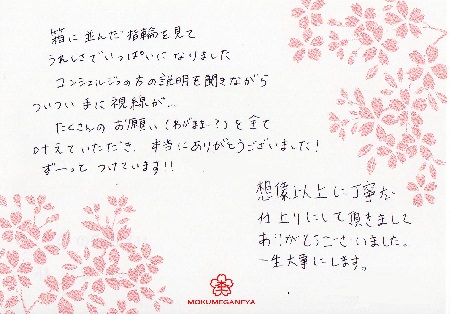 箱に並んだ指輪を見て
うれしさでいっぱいになりました
コンシェルジュの方の説明を聞きながら
ついつい手に視線が…
たくさんのお願い(わがまま?)を全て
叶えていただき、本当にありがとうございました!
ずーっと つけています!!
想像以上に丁寧な
仕上りにして頂きまして
ありがとうございました。
一生大事にします。
MOKUMEGANEYA